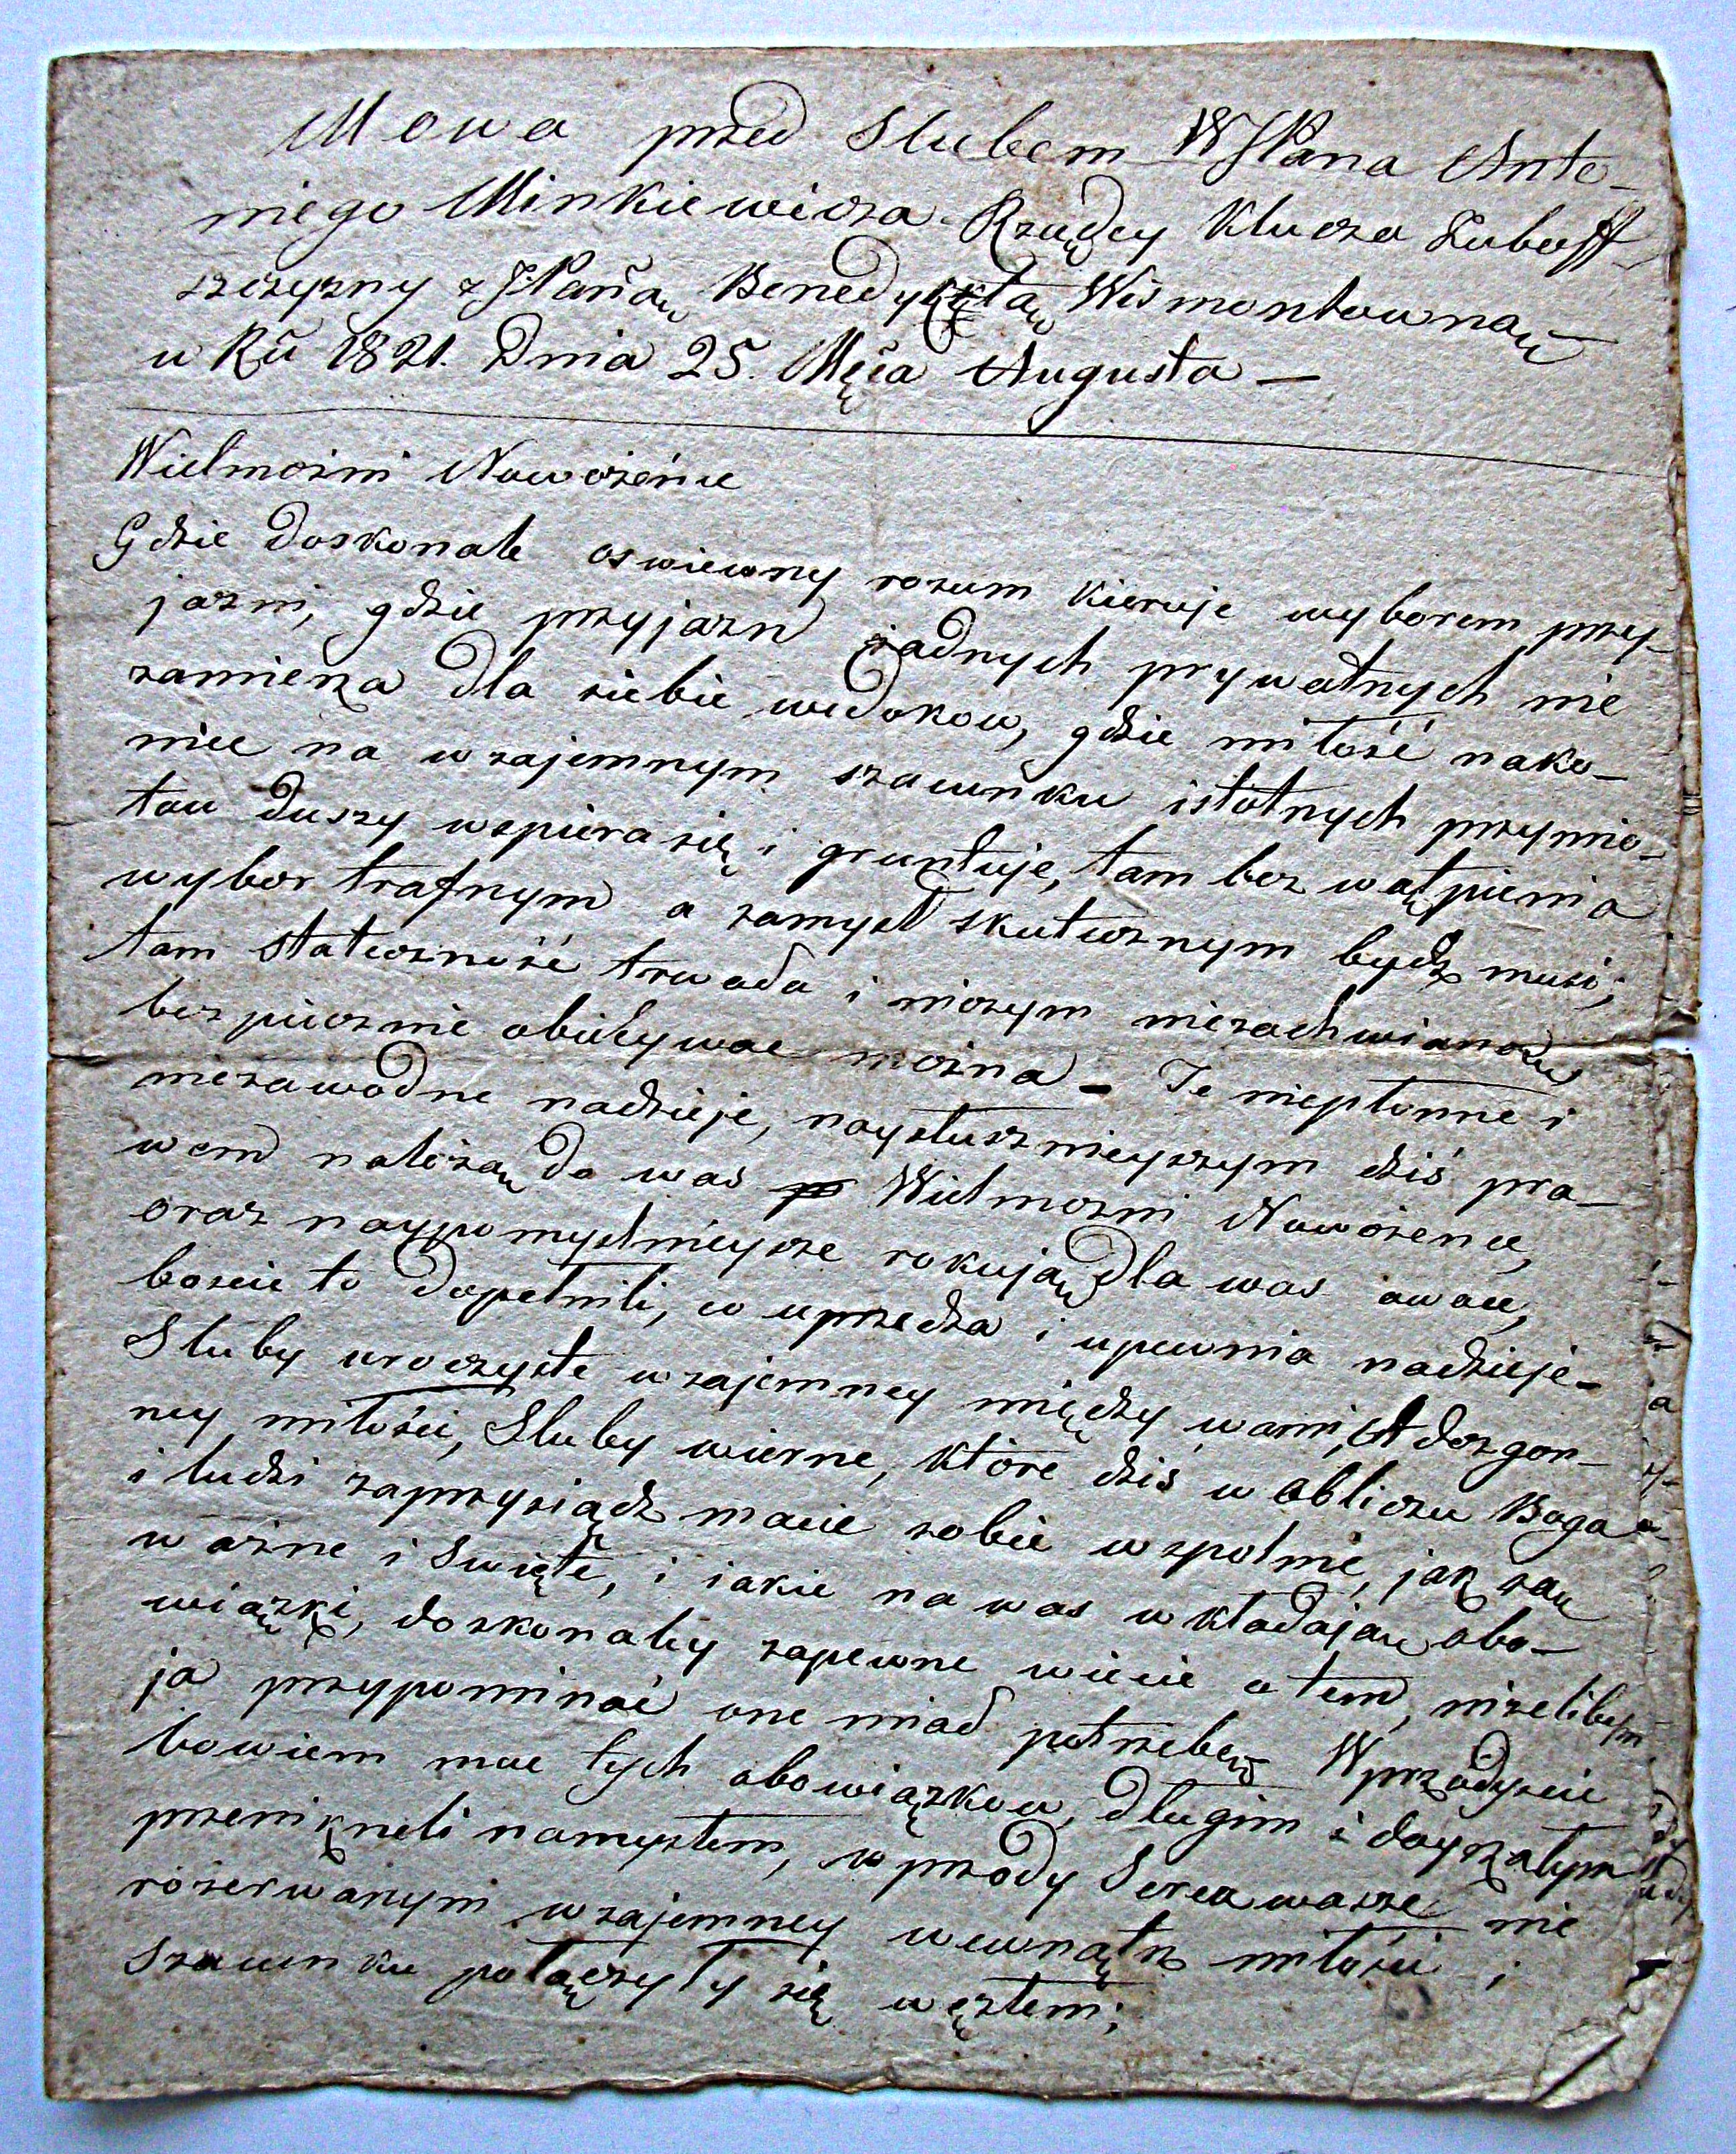 Mowa przed Slubem WJPana Anto-
niego Minkiewicza Rządcy Klucza
szczyzny z JPaną Benedyktą Wismontowną
w Rũ 1821. Dnia 25. Mca Augusta —
Wielmożni Nowożeńce
Gdzie doskonale oswiecony rozum kieruje wyborem przy-
jazni, gdzie przyjazn żadnych prywatnych nie
zamierza dla siebie widokow, gdzie miłość nako-
niec na wzajemnym szacunku istotnych przymio-
tow duszy wspiera się i gruntuje, tam bez wątpienia
wybor trafnym a zamysł skutecznym bydź musi;
tam stateczność trwała i niczym niezachwianą
bezpiecznie obiecywać można — Te niepłonne i
niezawodne nadzieje, nayslusznieyszym dziś pra-
wem należą do was Wielmożni Nowożence,
oraz naypomyślnieysze rokują dla was owoce,
boscie to dopełnili, co uprzedza i upewnia nadzieje-
Sluby uroczyste wzajemney między wami, dozgon-
ney miłości, Sluby wierne, które dziś w obliczu Boga
i ludzi zaprzysiądz macie sobie wspolnie, jak są
ważne i Swięte, i iakie na was wkładają obo-
wiązki, doskonaley zapewne wiecie o tem, niżelibym
ja przypominać one miał potrzebę Wprzodyscie
bowiem moc tych obowiązkow, długim i doyzrałym
przenikneli namysłem, wprzody Serca wasze nie
rozerwanym wzajemney wewnątrz miłości i
szacunku połączyły się węzłem;